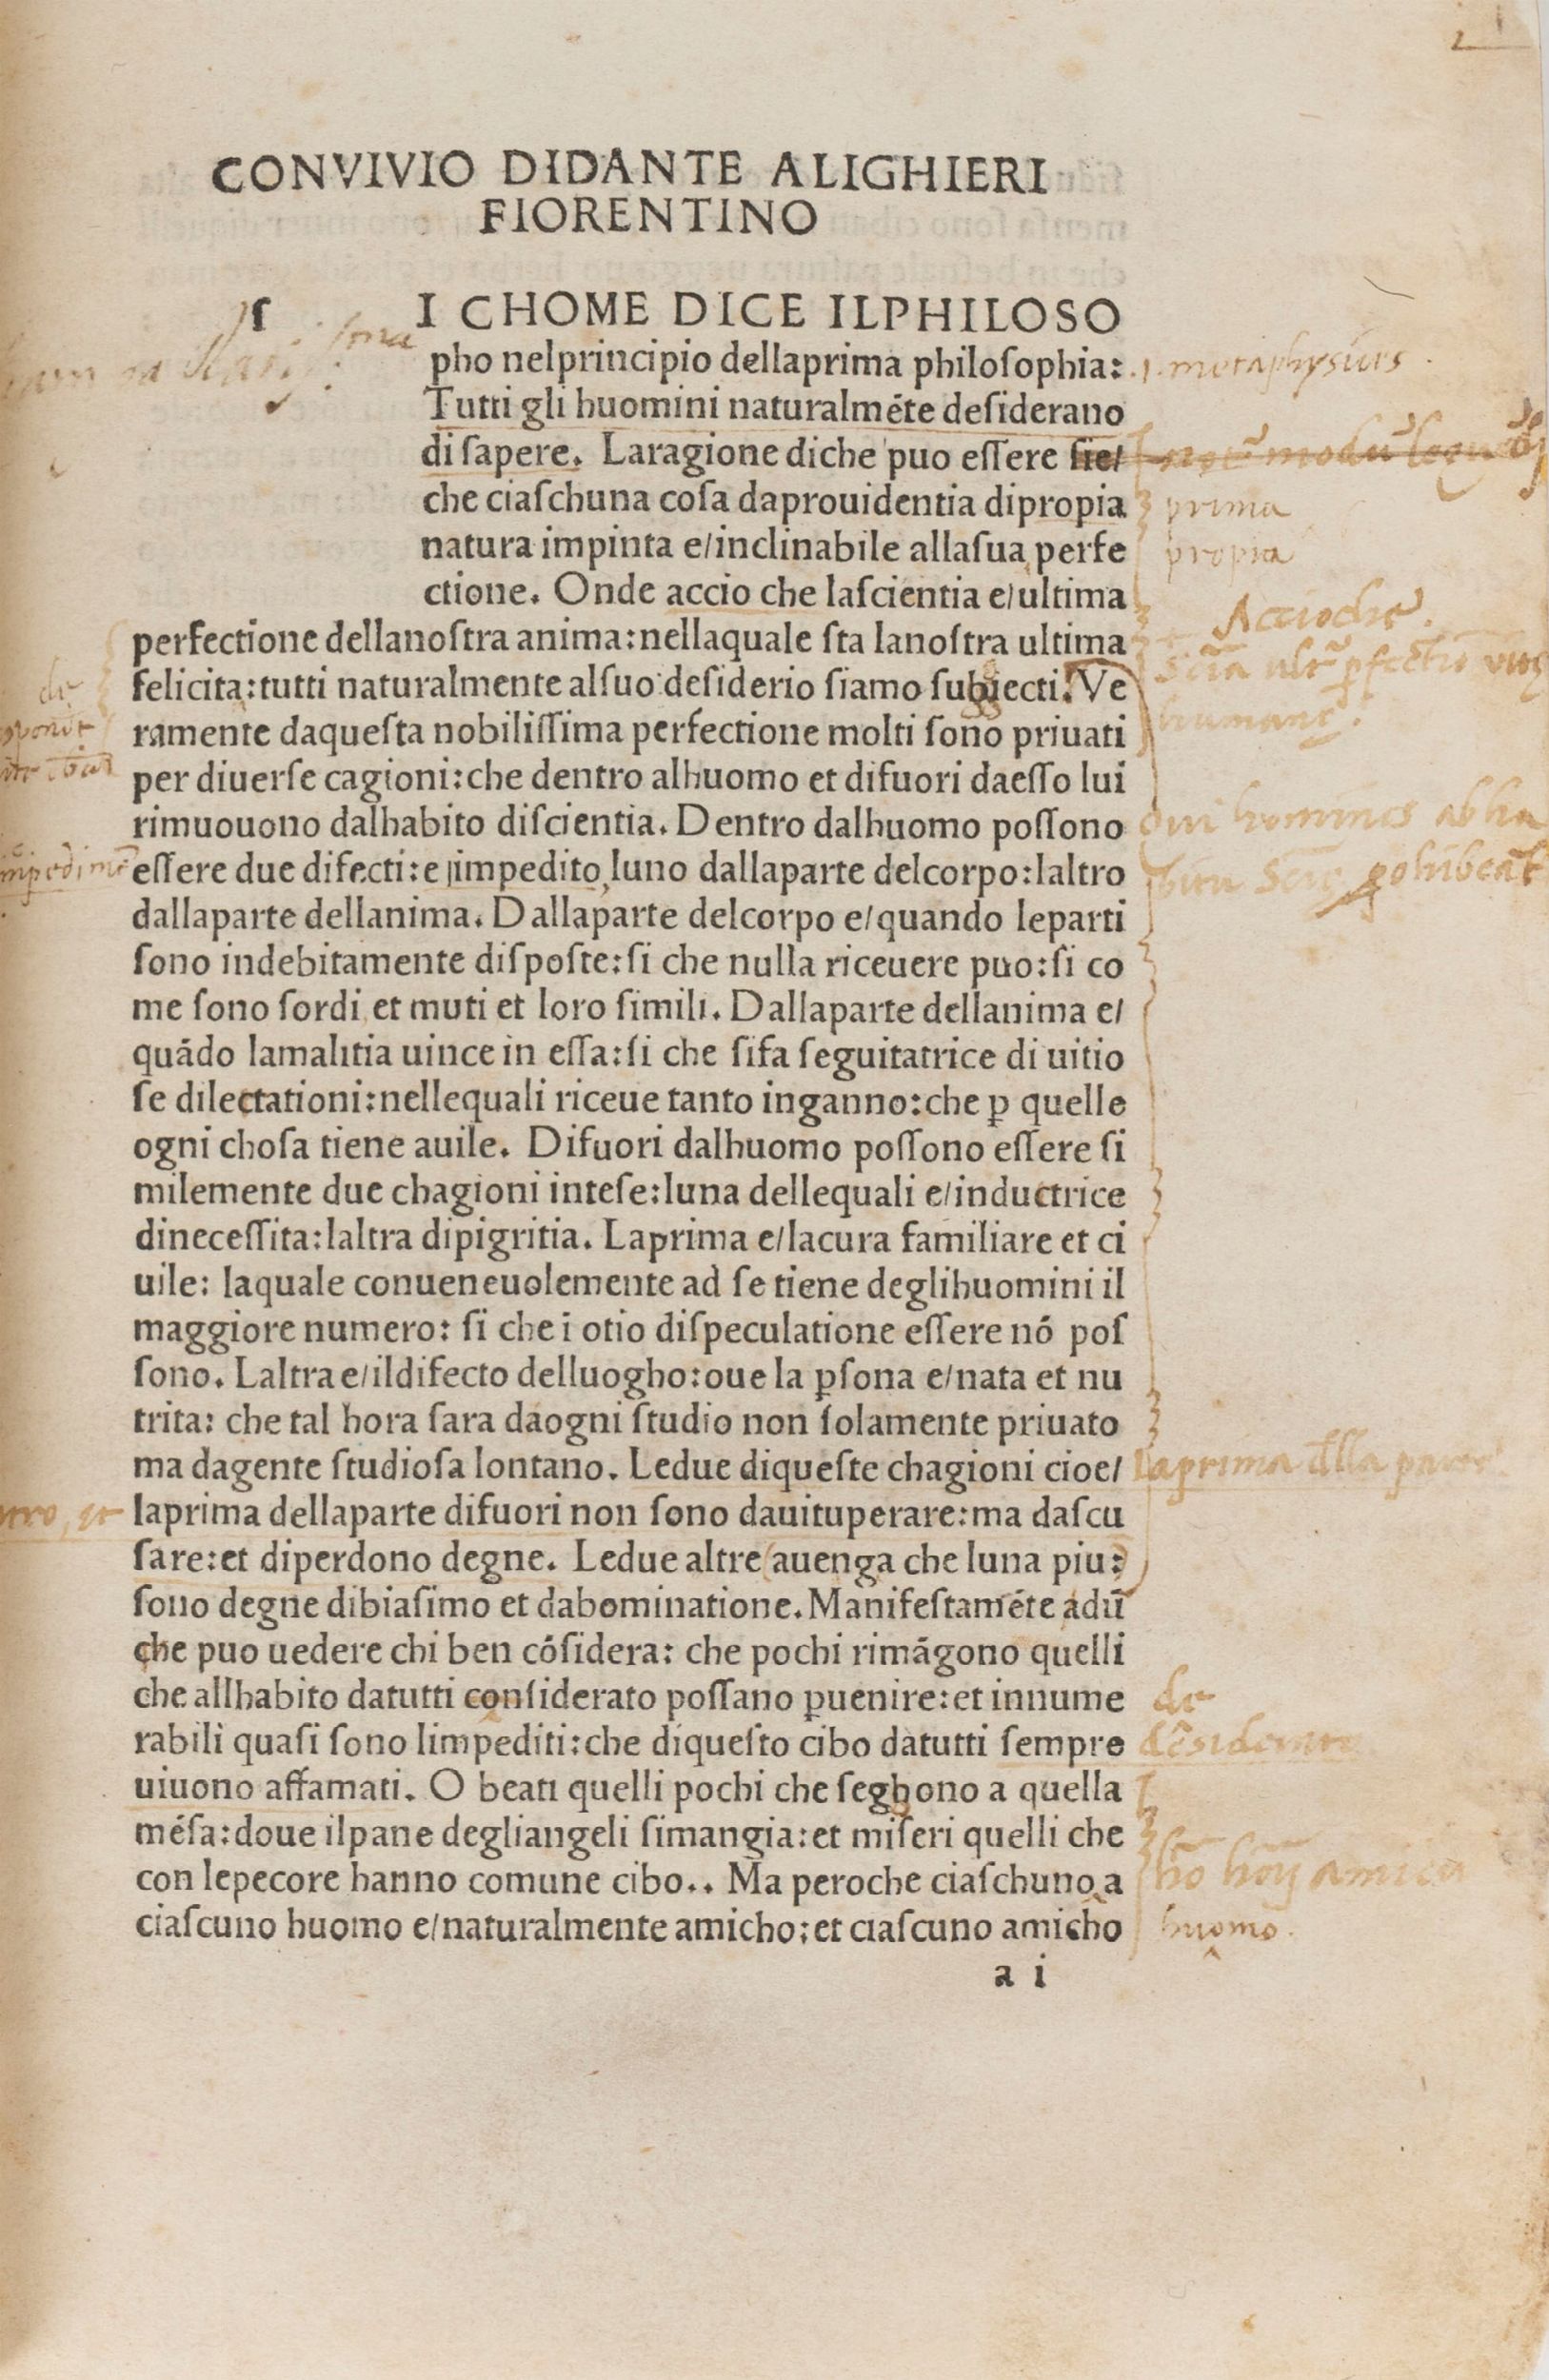 CONVIVIO DIDANTE ALIGHIERI
FIORENTINO
ſ I CHOME DICE ILPHILOSO
pho nelprincipio dellaprima philoſophia: .1. metaphysicis
Tutti gli huomini naturalméte deſiderano
di ſapere. Laragione diche puo eſſere ſie/
che ciaſchuna coſa daprouidentia dipropia prima
natura impinta e/inclinabile allaſua perfe propia
ctione. Onde accio che laſcientia e/ultima Accioche.
perfectione dellanoſtra anima:nellaquale ſta lanoſtra ultima
felicita:tutti naturalmente alſuo deſiderio ſiamo subiecti. Ve
ramente daqueſta nobiliſſima perfectione molti ſono priuati
per diuerſe cagioni:che dentro alhuomo et difuori daeſſo lui
rimuouono dalhabito diſcientia. Dentro dalhuomo poſſono homines ab ha
eſſere due difecti:e impedito luno dallaparte delcorpo:laltro bitu
dallaparte dellanima. Dallaparte delcorpo e/quando leparti
ſono indebitamente diſpoſte:ſi che nulla riceuere puo:ſi co
me ſono ſordi et muti et loro ſimili. Dallaparte dellanima e/
quādo lamalitia uince in eſſa:ſi che ſifa ſeguitatrice di uitio
ſe dilectationi:nellequali riceue tanto inganno:che ꝑ quelle
ogni choſa tiene auile. Difuori dalhuomo poſſono eſſere ſi
milemente due chagioni inteſe:luna dellequali e/inductrice
dineceſſita:laltra dipigritia. Laprima e/lacura familiare et ci
uile: laquale conueneuolemente ad ſe tiene deglihuomini il
maggiore numero: ſi che i otio diſpeculatione eſſere nó poſ
ſono. Laltra e/ildifecto delluogho:oue la ꝑſona e/nata et nu
trita: che tal hora ſara daogni ſtudio non ſolamente priuato
ma dagente ſtudioſa lontano. Ledue diqueſte chagioni cioe/ laprima
laprima dellaparte difuori non ſono dauituperare:ma daſcu
ſare:et diperdono degne. Ledue altre (auenga che luna piu:)
ſono degne dibiaſimo et dabominatione. Manifeſtaméte adū
che puo uedere chi ben cóſidera: che pochi rimāgono quelli
che allhabito datutti conſiderato poſſano ꝑuenire:et innume de
rabili quaſi ſono limpediti:che diqueſto cibo datutti ſempre
uiuono affamati. O beati quelli pochi che ſeghono a quella
méſa:doue ilpane degliangeli ſimangia:et miſeri quelli che
con lepecore hanno comune cibo.. Ma peroche ciaſchuno a
ciaſcuno huomo e/naturalmente amicho:et ciaſcuno amicho huomo.
a i